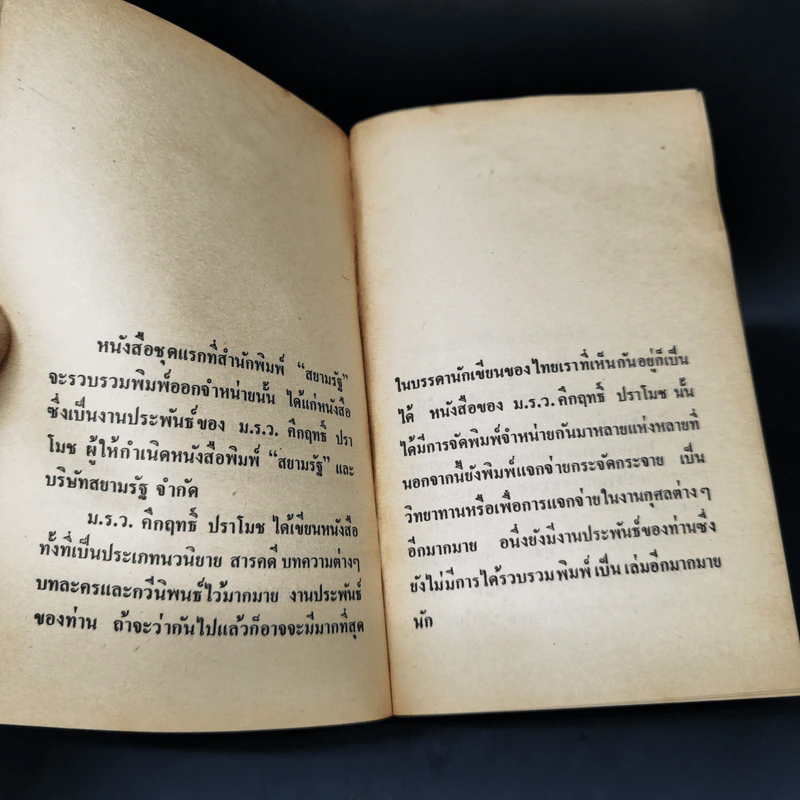 หนังสือชุดแรกที่สำนักพิมพ์ “สยามรัฐ”
จะรวบรวมพิมพ์ออกจำหน่ายนั้น ได้แก่หนังสือ
ซึ่งเป็นงานประพันธ์ของ ม.ร.ว. คึกฤทธิ์ ปรา
โมช ผู้ให้กำเนิดหนังสือพิมพ์ “สยามรัฐ” และ
บริษัทสยามรัฐ จำกัด
ม.ร.ว. คึกฤทธิ์ ปราโมช ได้เขียนหนังสือ
ทั้งที่เป็นประเภทนวนิยาย สารคดี บทความต่างๆ
บทละครและกวีนิพนธ์ไว้มากมาย งานประพันธ์
ของท่าน ถ้าจะว่ากันไปแล้วก็อาจจะมีมากที่สุด
ในบรรดานักเขียนของไทยเราที่เห็นกันอยู่ก็เป็น
ได้ หนังสือของ ม.ร.ว. คึกฤทธิ์ ปราโมช นั้น
ได้มีการจัดพิมพ์จำหน่ายกันมาหลายแห่งหลายที่
นอกจากนี้ยังพิมพ์แจกจ่ายกระจัดกระจาย เป็น
วิทยาทานหรือเพื่อการแจกจ่ายในงานกุศลต่างๆ
อีกมากมาย อนึ่งยังมีงานประพันธ์ของท่านซึ่ง
ยังไม่มีการได้รวบรวมพิมพ์เป็นเล่มอีกมากมาย
นัก